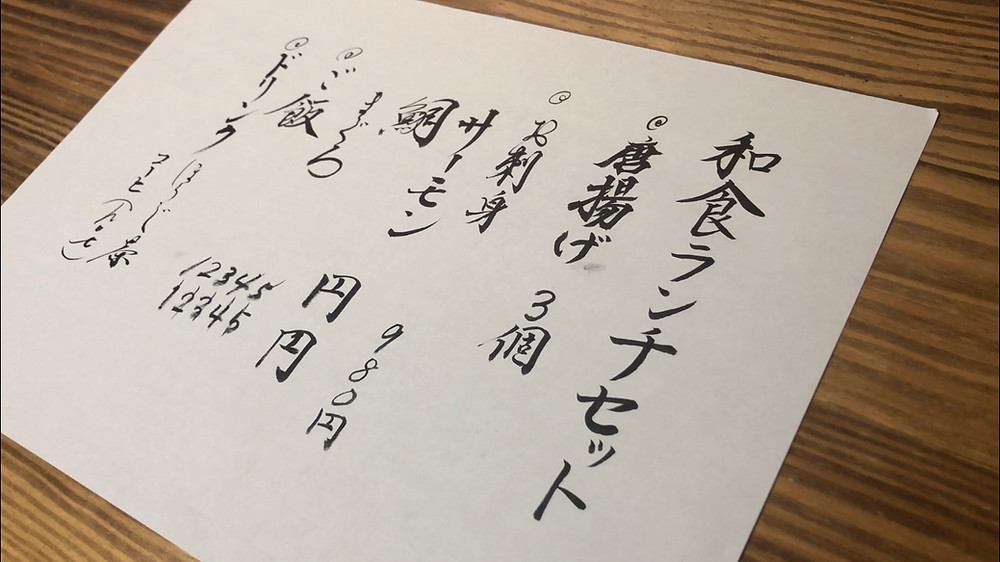 和食ランチセット
◎唐揚げ 3個
◎お刺身
サーモン
鯛
まぐろ
◎ご飯
◎ドリンク
ほうじ茶
コーヒー
980円
円
円
12345
12345